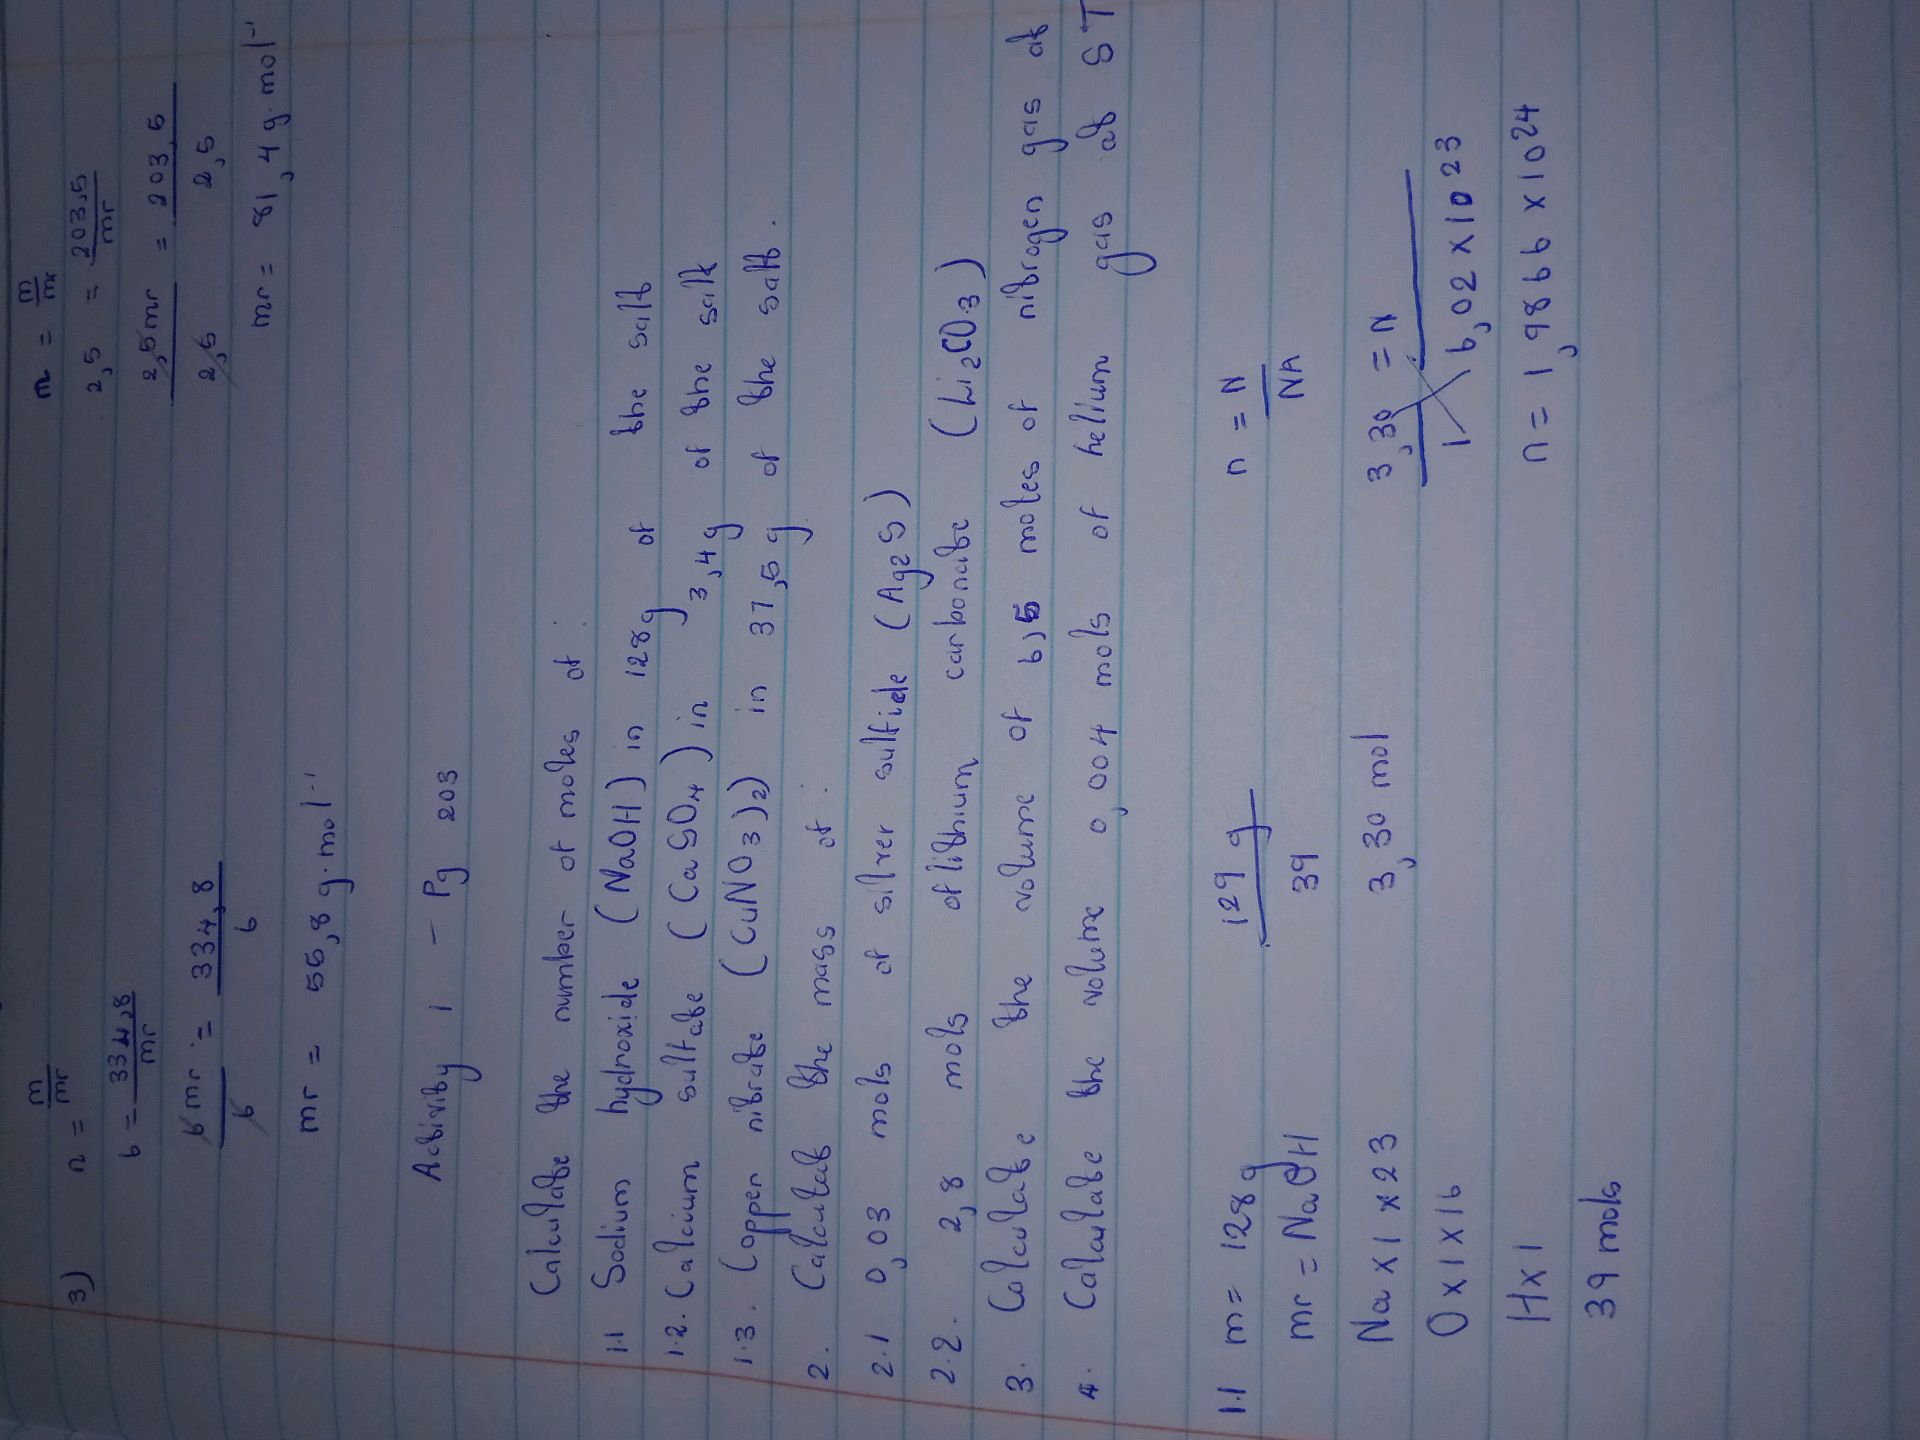 3) n = m/mr
6 = 334,8/mr
6mr/6 = 334,8/6
mr = 55,8 g.mol⁻¹
n = m/mr
2,5 = 203,5/mr
2,5mr/2,5 = 203,5/2,5
mr = 81,4 g.mol⁻¹
Activity 1 - Pg 203
Calculate the number of moles of:
1.1 Sodium hydroxide (NaOH) in 128g of the salt
1.2. Calcium sulfate (CaSO4) in 3,4g of the salt
1.3. Copper nitrate (CuNO3)2) in 37,5g of the salt.
2. Calculate the mass of:
2.1 0,03 mols of silver sulfide (Ag2S)
2.2. 2,8 mols of lithium carbonate (Li2CO3)
3. Calculate the volume of 6,5 moles of nitrogen gas at
4. Calculate the volume 0,004 mols of helium gas at ST
1.1 m = 128g
mr = NaOH
Na x 1 x 23
O x 1 x 16
H x 1
39 mols
129 g/39
3,30 mol
n = N/NA
3,30/1 = N/6,02 x 10 23
n = 1,9866 x 10 24